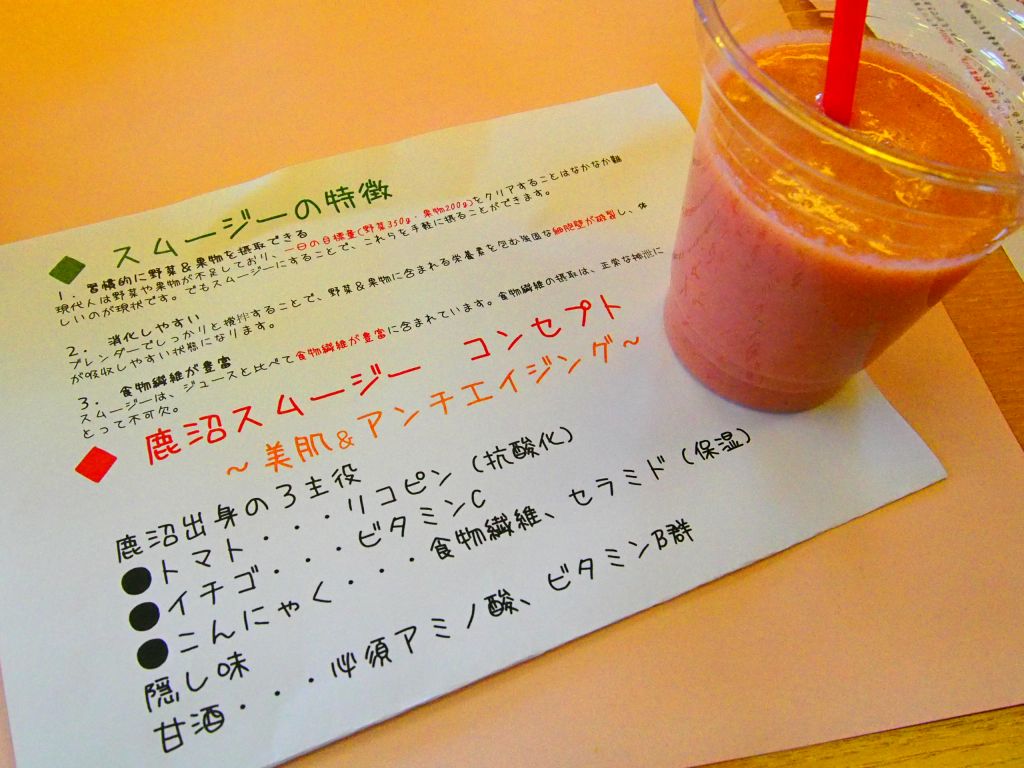 スムージーの特徴
1. 習慣的に野菜＆果物を摂取できる
現代人は野菜や果物が不足しており、一日の目標量(野菜350g・果物200g)をクリアすることはなかなか難
しいのが現状です。でもスムージーにすることで、これらを手軽に摂ることができます。
2. 消化しやすい
ブレンダーでしっかりと撹拌することで、野菜＆果物に含まれる栄養素を包む強固な細胞壁が破裂し、体
が吸収しやすい状態になります。
3. 食物繊維が豊富
スムージーは、ジュースと比べて食物繊維が豊富に含まれています。食物繊維の摂取は、正常な排泄に
とって不可欠。
鹿沼スムージー コンセプト
～美肌＆アンチエイジング～
鹿沼出身の3主役
●トマト・・・リコピン(抗酸化)
●イチゴ・・・ビタミンC
●こんにゃく・・・食物繊維、セラミド(保湿)
隠し味
甘酒・・・必須アミノ酸、ビタミンB群